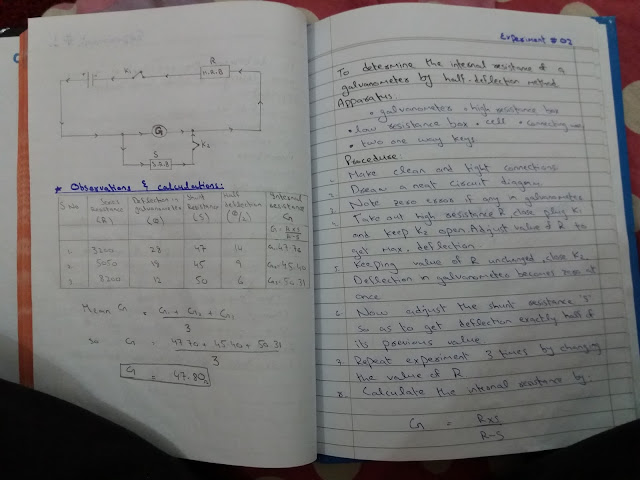 R
H.R.B
+ -
K1
G
K2
S
S.R.B
* Observations & calculations:
S.No Series resistance (R) Deflection in galvanometer (Φ) Shunt Resistance (S) Half deflection (Φ/2) Internal resistance G
G = RxS
R-S
1. 3200 28 47 14 G1=47.70
2. 5050 18 45 9 G2=45.40
3 3200 12 50 6 G3=50.31
Mean G = G1 + G2 + G3
3
so G = 47.70 + 45.40 + 50.31
3
G = 47.80
Experiment # 02
To determine the internal resistance of a
galvanometer by half-deflection method
Apparatus
• galvanometer • high resistance box
• low resistance box • cell • connecting wires
• two one way keys
Procedure:
1. Make clean and tight connections
2. Draw a neat circuit diagram
3. Note zero error if any in galvanometer
4. Take out high resistance R close plug K1
and keep K2 open. Adjust value of R to
get max. deflection
5. Keeping value of R unchanged, close K2.
Deflection in galvanometer becomes zero at
once
6. Now adjust the shunt resistance 'S'
so as to get deflection exactly half of
its previous value
7. Repeat experiment 3 times by changing
the value of R
8. Calculate the internal resistance by:
G = RxS
R-S